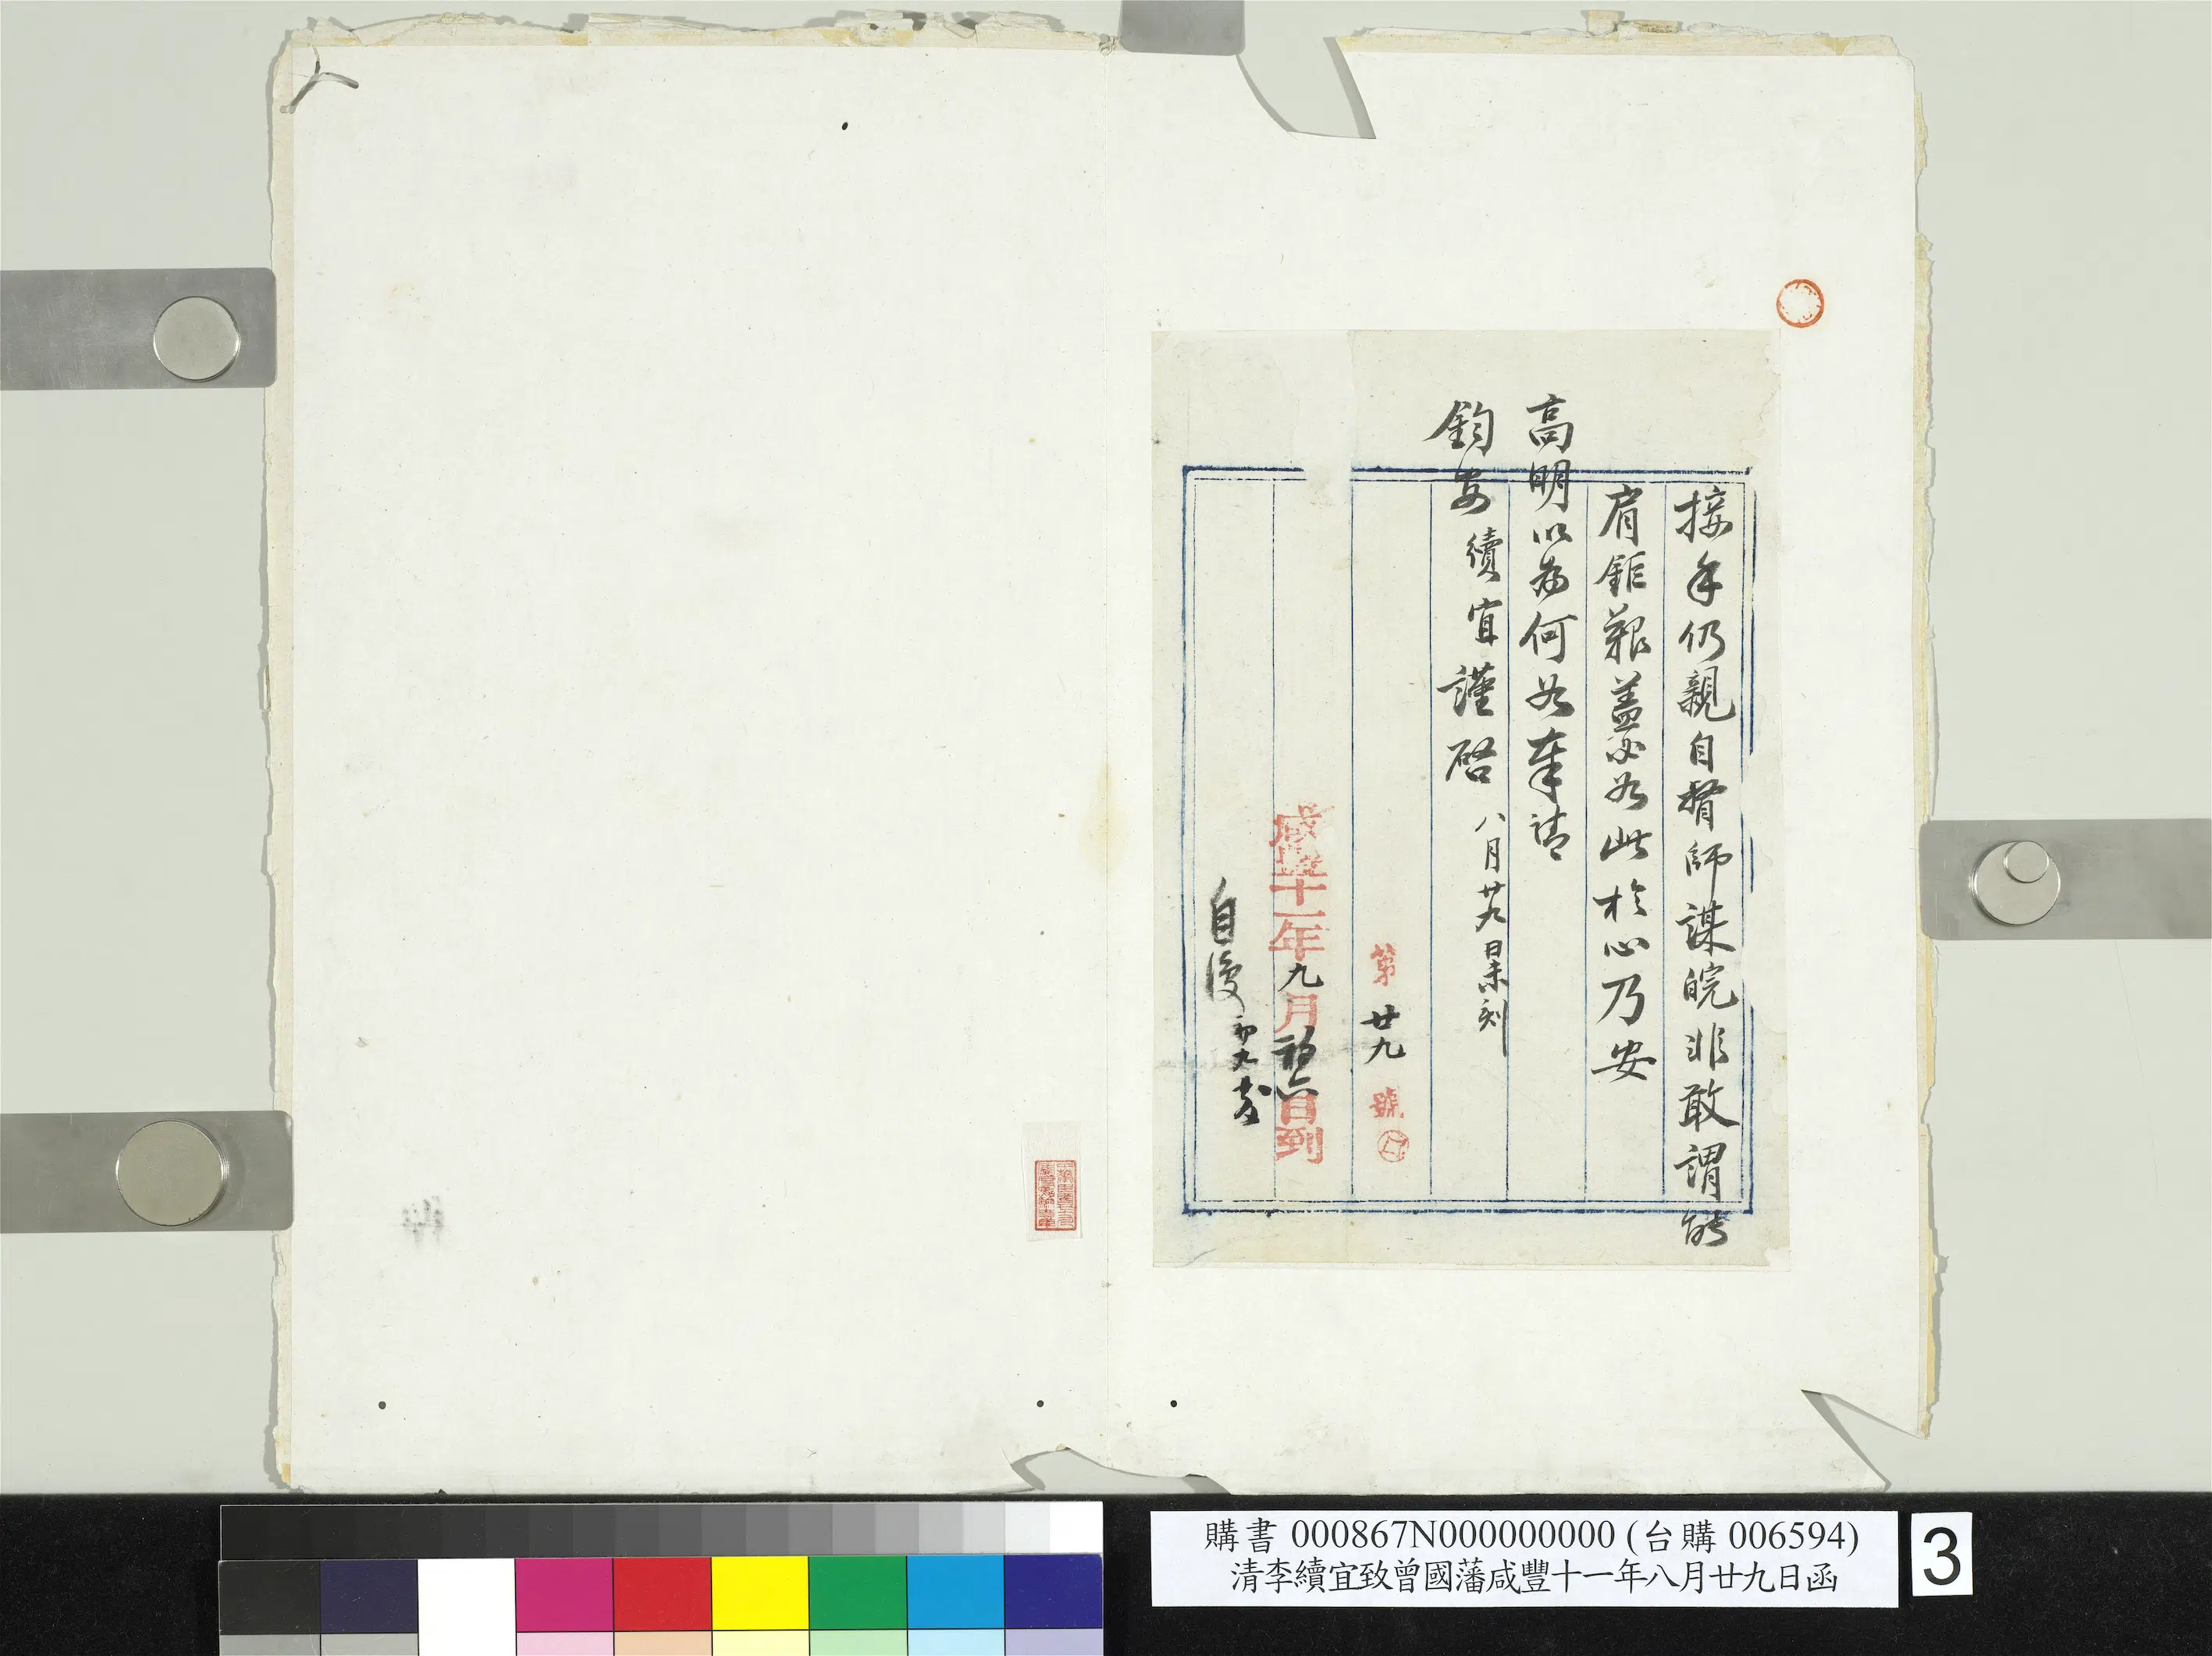 接手仍親自督師謀皖非敢謂能
肩鉅艱蓋必如此於心乃安
高明以為何如奉請
鈞安 續宜謹啓 八月廿九日未刻
第廿九號
咸豐十一年九月初六日到
自復 初九發
購書 000867N000000000 (台購 006594)
清李續宜致曾國藩咸豐十一年八月廿九日函
3